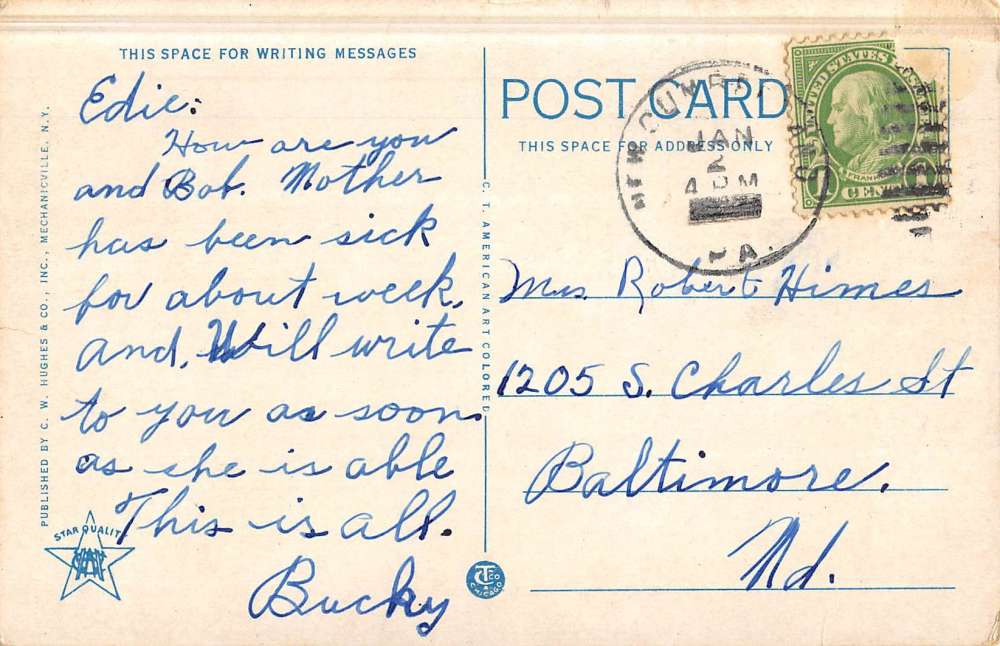 THIS SPACE FOR WRITING MESSAGES
Edie:
How are you
and Bob. Mother
has been sick
for about week.
and, Will write
to you as soon
as she is able
This is all.
Bucky
PUBLISHED BY C. W. HUGHES & CO., INC., MECHANICVILLE, N.Y.
STAR QUALITY
C. T. AMERICAN ART COLORED
CT CO CHICAGO
POST CARD
THIS SPACE FOR ADDRESS ONLY
NEW
JAN
2
4 PM
PA.
UNITED STATES POST
CEN
Mrs Robert Himes
1205 S. Charles St
Baltimore.
Md.